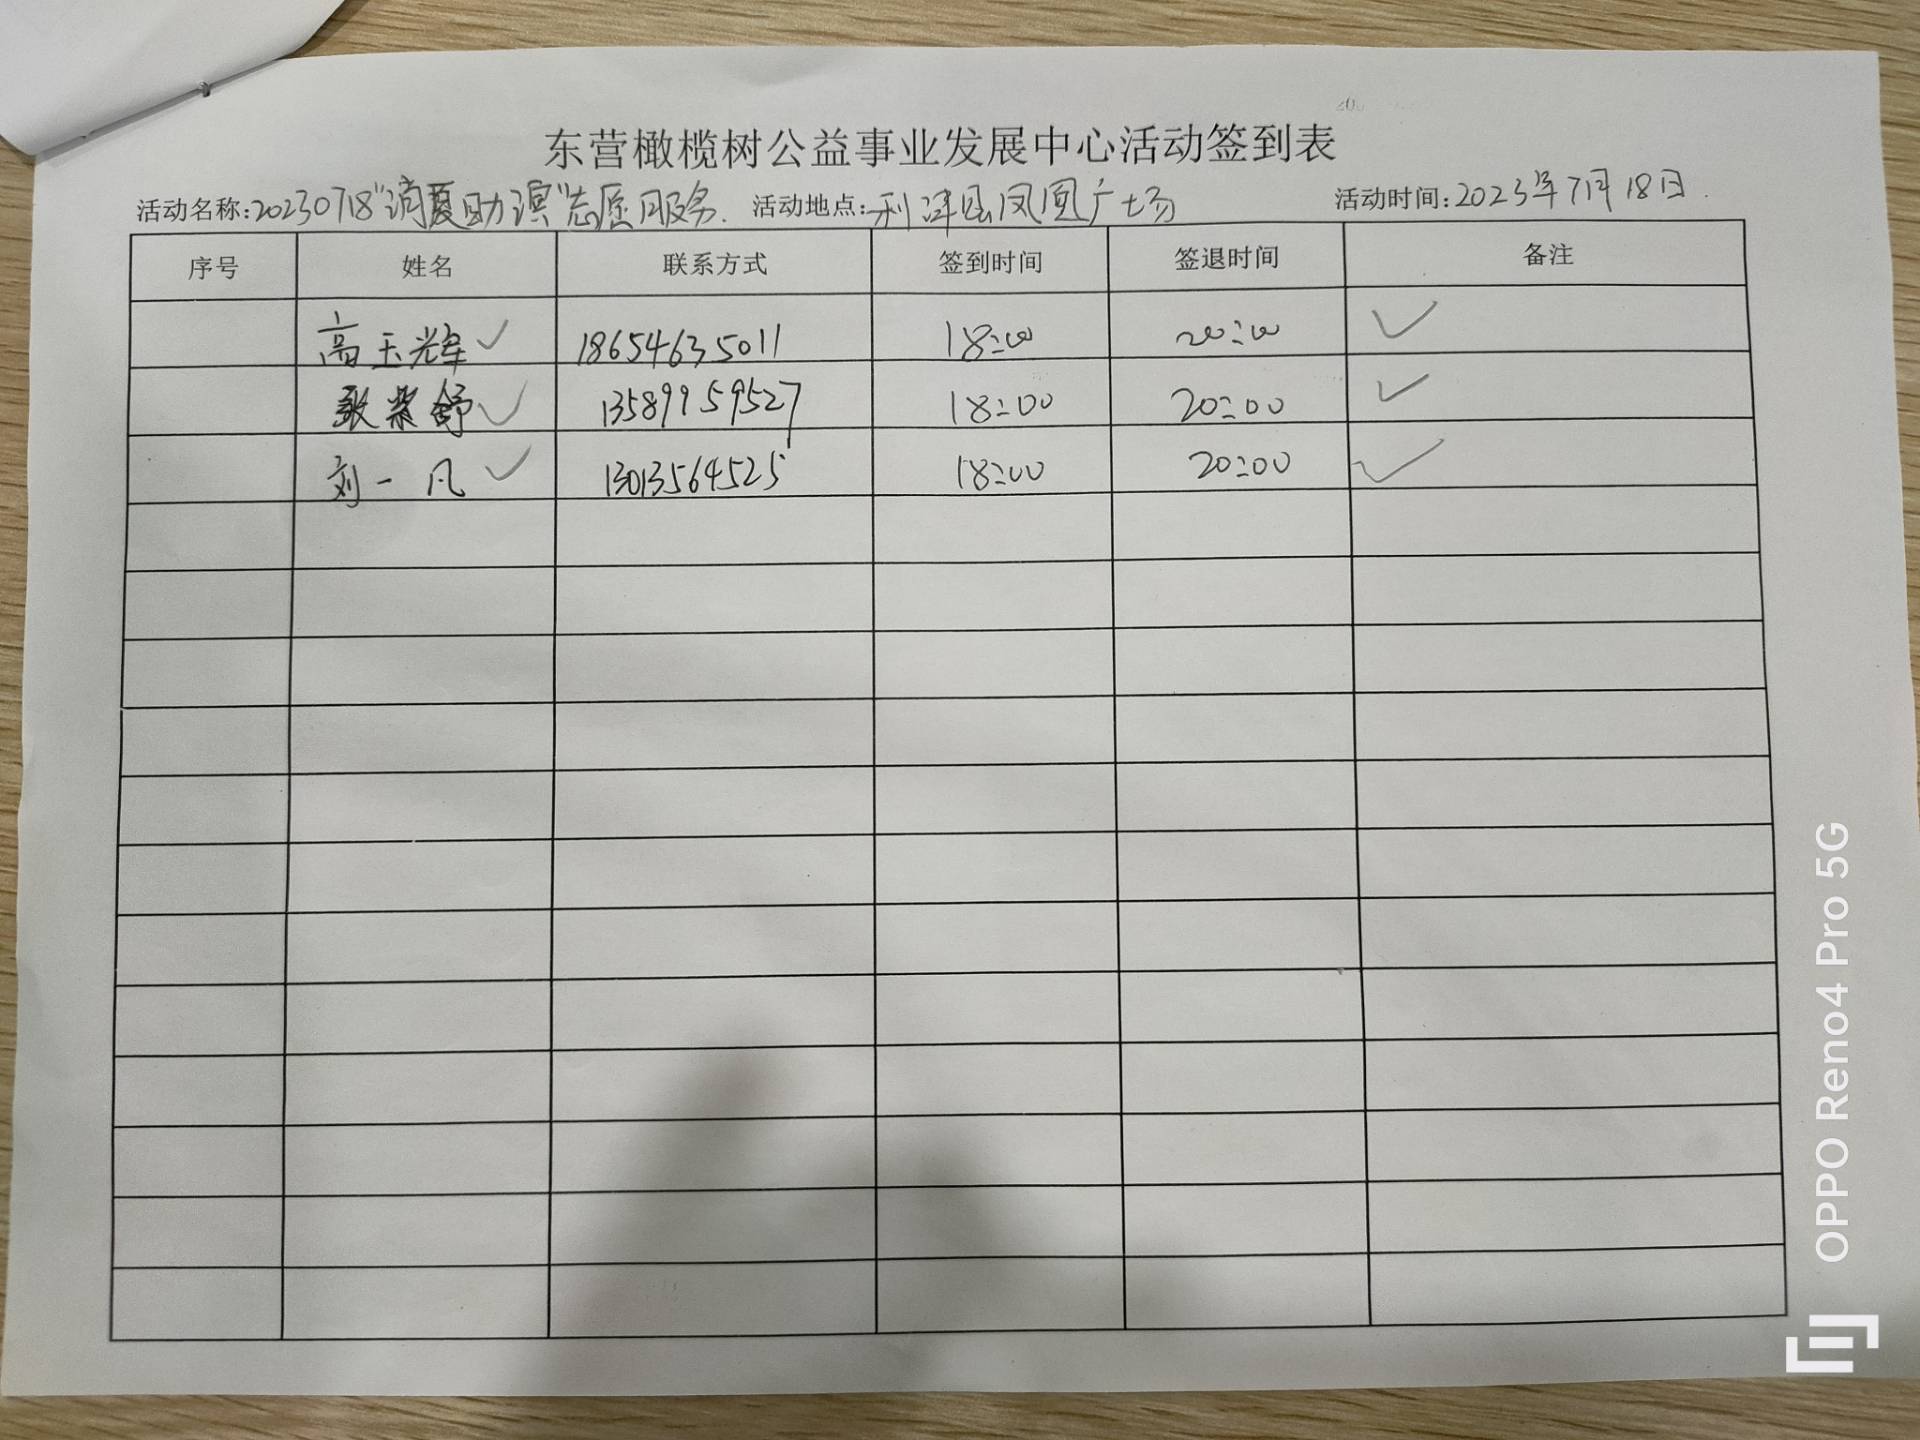 东营橄榄树公益事业发展中心活动签到表
活动名称:20230718"消夏助演"志愿服务. 活动地点:利津县凤凰广场 活动时间:2023年7月18日.
序号 姓名 联系方式 签到时间 签退时间 备注
高玉辉✓ 18654635011 18:00 20:00 ✓
紫舒✓ 13589959527 18:00 20:00 ✓
刘一凡✓ 13013564525 18:00 20:00 ✓
OPPO Reno4 Pro 5G